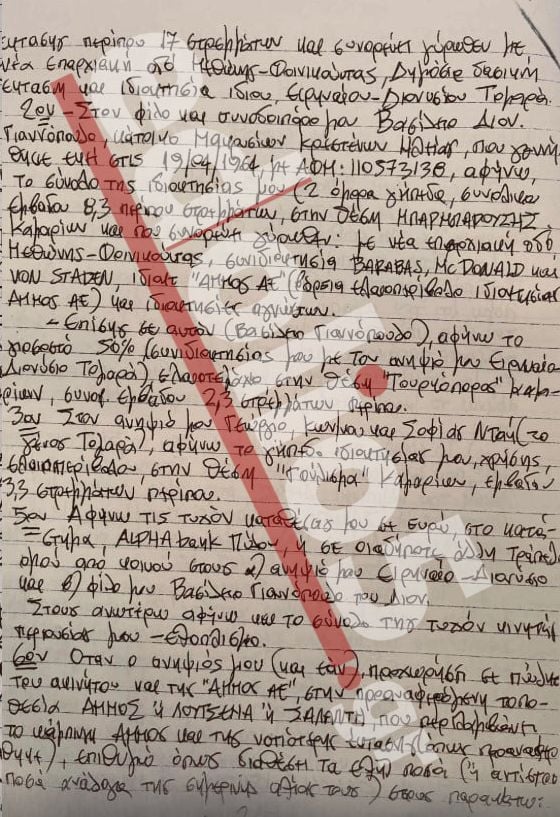 εκτασης περίπου 17 στρεμμάτων και συνορεύει γύρωθεν με
νέα επαρχιακή οδό Μεθώνης-Φοινικούντας, Δημόσια δασική
έκταση και ιδιοκτησία ιδίου, Ειρηναίου-Διονυσίου Τομαρά.
2ον - Στον φίλο και συνοδοιπόρο μου Βασίλειο Διον.
Γιαννόπουλο, κάτοικο Μακρισίων Κρεστένων Ηλείας, που γεννή
θηκε εκεί στις 19/04/1964, με ΑΦΜ: 110573138, αφήνω
το σύνολο της ιδιοκτησίας μου (2 όμορα γήπεδα, συνολικού
εμβαδού 8,3 περίπου στρεμμάτων, στην θέση ΜΠΑΡΜΠΑΡΟΥΣΗΣ,
Καμαρίων και που συνορεύει γύρωθεν: με νέα επαρχιακή οδό
Μεθώνης-Φοινικούντας, συνιδιοκτησία BARABAS, McDONALD και
VON STADEN, ιδιοκτ. "ΑΜΜΟΣ ΑΕ" (βόρεια ελαιοπερίβολο ιδιοκτησίας
ΑΜΜΟΣ ΑΕ) και ιδιοκτησίες αγνώστων.
- Επίσης σε αυτόν (Βασίλειο Γιαννόπουλο), αφήνω το
ποσοστό 50% (συνιδιοκτησίας μου με τον ανηψιό μου Ειρηναίο
Διονύσιο Τομαρά) ελαιοτεμάχιο στην θέση "Τουρκόπορος" Καμα-
ρίων, συνολ. εμβαδού 2,3 στρεμμάτων περίπου.
3ον Στον ανηψιό μου Γεώργιο, Κων/νου και Σοφίας Νταή (το
γένος Τομαρά), αφήνω το γήπεδο ιδιοκτησίας μου, χρήσης
ελαιοπερίβολου, στην θέση Καμαρίων, εμβαδού
3,3 στρεμμάτων περίπου.
5ον Αφήνω τις τυχόν καταθέσεις μου σε ευρώ, στο κατά-
στημα, ALPHA bank Πύλου, ή σε οιαδήποτε άλλη Τράπεζα
ομού από κοινού στους α) ανηψιό μου Ειρηναίο-Διονύσιο
και β) φίλο μου Βασίλειο Γιαννόπουλο του Διον.
Στους ανωτέρω αφήνω και το σύνολο της τυχόν κινητής
περιουσίας μου - εξοπλισμό.
6ον Όταν ο ανηψιός μου (και εάν), προχωρήση σε πώληση
του ακινήτου και της "ΑΜΜΟΣ ΑΕ", στην προαναφερόμενη τοπο-
θεσία ΑΜΜΟΣ ή ΛΟΥΤΣΕΝΑ ή ΣΑΛΑΝΤΗ, που περιλαμβάνει
το κάμπινγκ ΑΜΜΟΣ και της νοτιότερης έκτασης (όπως προαναφέρ
θηκε), επιθυμώ όπως διαθέση τα εξής ποσά (ή αντίστοιχα
ποσά ανάλογα της σημερινής αξίας τους) στους παρακάτω: